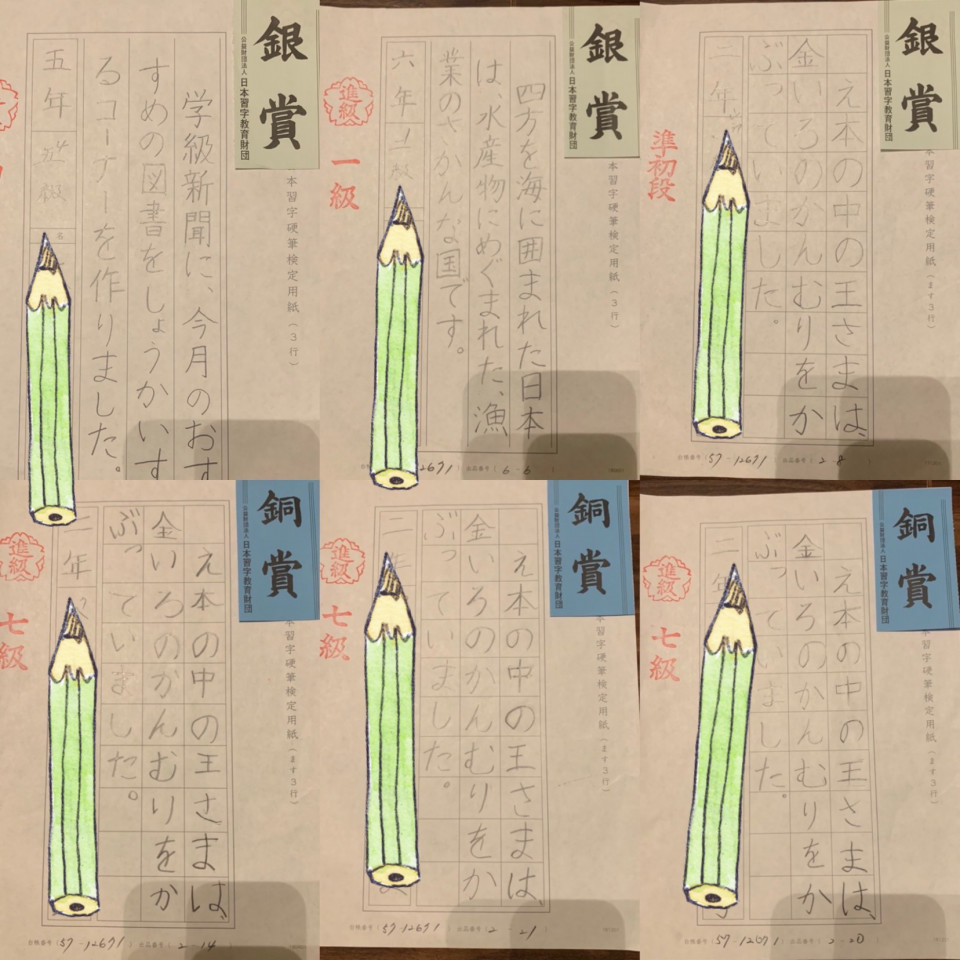 銀賞
公益財団法人 日本習字教育財団
本習字硬筆検定用紙(3行)
学級新聞に、今月のおす
すめの図書をしょうかいす
るコーナーを作りました。
五年
銀賞
公益財団法人 日本習字教育財団
本習字硬筆検定用紙(3行)
四方を海に囲まれた日本
は、水産物にめぐまれた、漁
業のさかんな国です。
六年
進級
一級
出品番号( 6-6
銀賞
公益財団法人 日本習字教育財団
本習字硬筆検定用紙(ます3行)
え本の中の王さまは、
金いろのかんむりをか
ぶっていました。
二年
準初段
合格番号( 57-12671 ) 出品番号( 2-8
銅賞
公益財団法人 日本習字教育財団
本習字硬筆検定用紙(ます3行)
え本の中の王さまは、
金いろのかんむりをか
ぶっていました。
二年
進級
七級
合格番号( 57-12671 ) 出品番号( 2-14
銅賞
公益財団法人 日本習字教育財団
本習字硬筆検定用紙(ます3行)
え本の中の王さまは、
金いろのかんむりをか
ぶっていました。
二年
進級
七級
合格番号( 57-12671 ) 出品番号( 2-21
銅賞
公益財団法人 日本習字教育財団
本習字硬筆検定用紙(ます3行)
え本の中の王さまは、
金いろのかんむりをか
ぶっていました。
二年
進級
七級
合格番号( 57-12671 ) 出品番号( 2-20